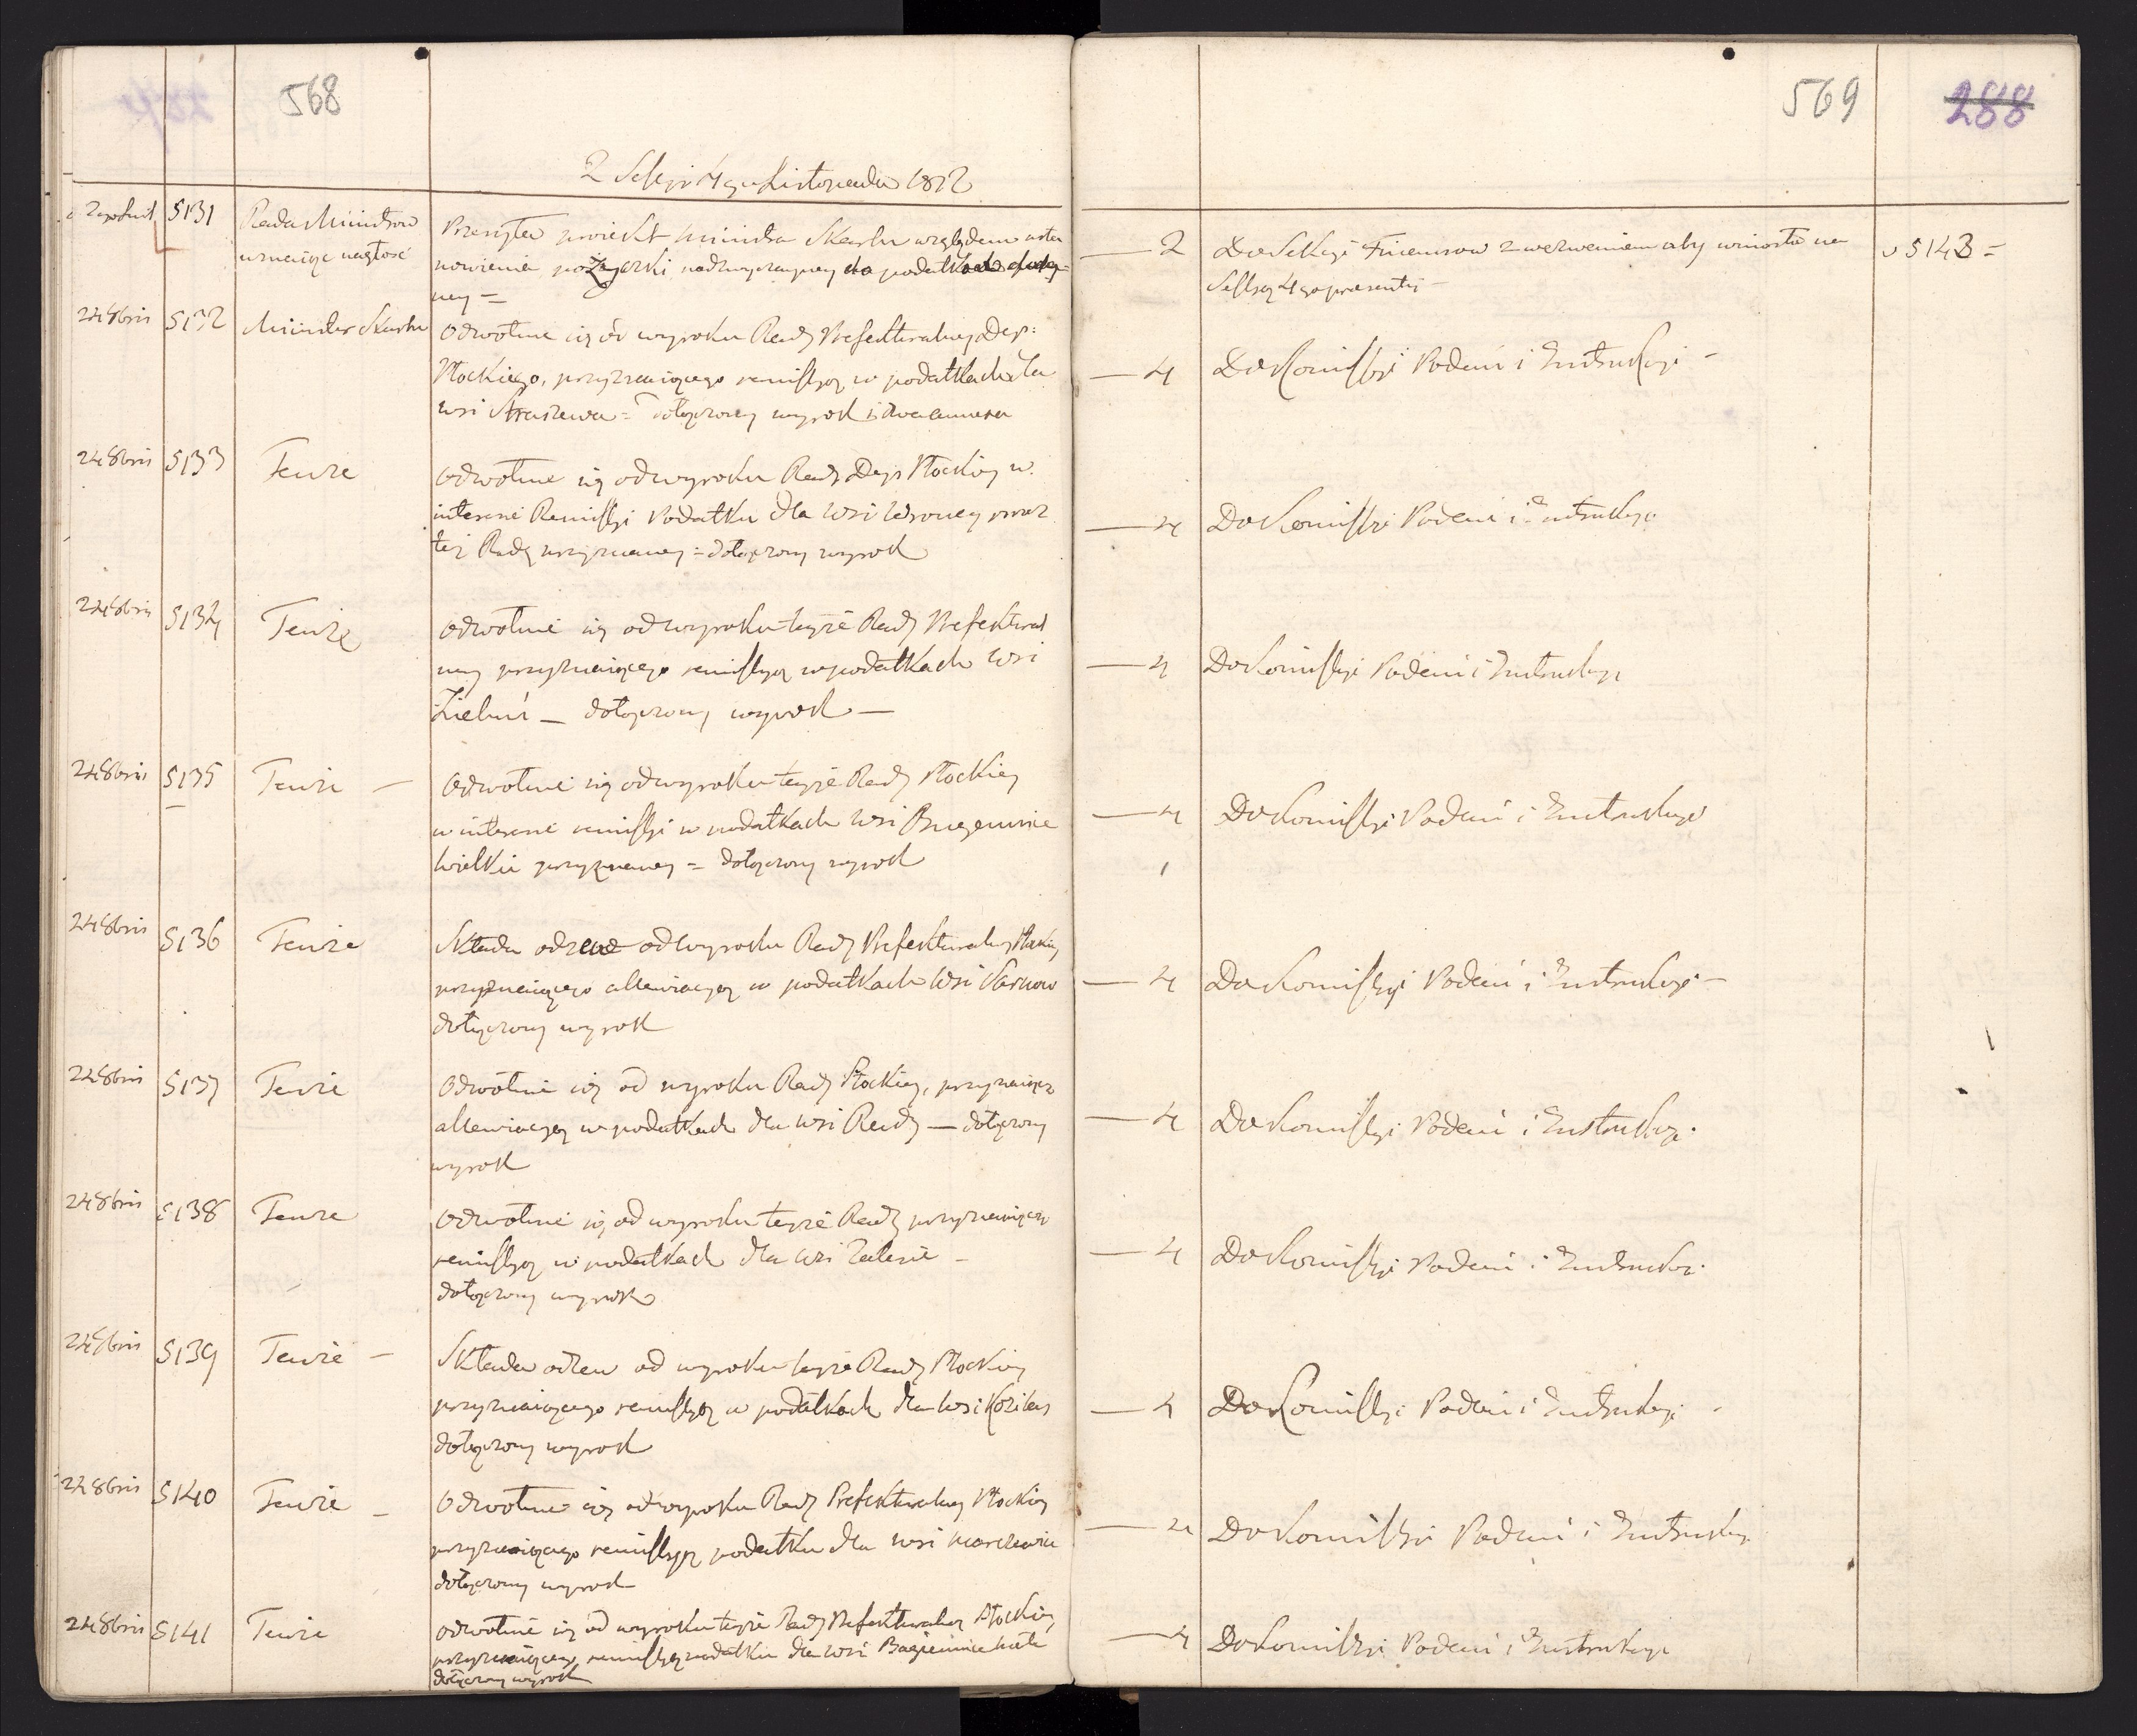 568
2 Sessyi 4go Listopada 1812
2 go List 5131 Rada Ministrow
uznaiąc nagłość
Przesyła proiekt Ministra Skarbu względem usta
nowienia pożyczki nadzwyczayney do podatku
ney =
24 8bris 5132 Minister Skarbu
Odwołuie się od wyroku Rady Prefekturalney Dep:
Płockiego, przyznaiącego remissyą w podatkach dla
wsi Straszewa = dołączony wyrok i dwa numera
24 8bris 5133 Tenże
Odwołuie się od wyroku Rady Dep Płockiey w
interesie Remissyi Podatku dla wsi przez
tęż Radę przyznaney = dołączony wyrok
24 8bris 5134 Tenże
Odwołuie się od wyroku teyże Rady Prefektural
ney przyznaiącego remissyą w podatkach wsi
Zieluń — dołączony wyrok —
24 8bris 5135 Tenże —
Odwołuie się od wyroku teyże Rady Płockiey
w interesie remissyi w podatkach wsi
Wielkie przyznaney = dołączony wyrok
24 8bris 5136 Tenże
Składa odzew od wyroku Rady Prefekturalney Płockiey
przyznaiącego allewiacyą w podatkach wsi Sarnow
dołączony wyrok
24 8bris 5137 Tenże
Odwołuie się od wyroku Rady Płockiey, przyznaiące
allewiacyą w podatkach dla wsi Rady — dołączony
wyrok
24 8bris 5138 Tenże
Odwołuie się od wyroku teyże Rady przyznaiące
remissyą w podatkach dla wsi Zalesie —
dołączony wyrok
24 8bris 5139 Tenże —
Składa odzew od wyroku teyże Rady Płockiey
przyznaiącego remissyą w podatkach dla wsi
dołączony wyrok
24 8bris 5140 Tenże —
Odwołuie się od wyroku Rady Prefekturalney Płockiey
przyznaiącego remissyą podatku dla wsi
dołączony wyrok
24 8bris 5141 Tenże
odwołuie się od wyroku teyże Rady Prefekturalney Płockiey
przyznaiącego remissyą podatku dla wsi
dołączony wyrok
569
288
— 2 Do Sekcyi Finansow z wezwaniem aby wniosła na
Sessyą 4go praesentis —
v 5143 =
— 4 Do Komissyi Podań i Instrukcyi —
— 4 Do Komissyi Podań i Instrukcyi
— 4 Do Komissyi Podań i Instrukcyi
— 4 Do Komissyi Podań i Instrukcyi
— 4 Do Komissyi Podań i Instrukcyi —
— 4 Do Komissyi Podań i Instrukcyi
— 4 Do Komissyi Podań i Instrukcyi
— 4 Do Komissyi Podań i Instrukcyi
— 4 Do Komissyi Podań i Instrukcyi
— 4 Do Komissyi Podań i Instrukcyi